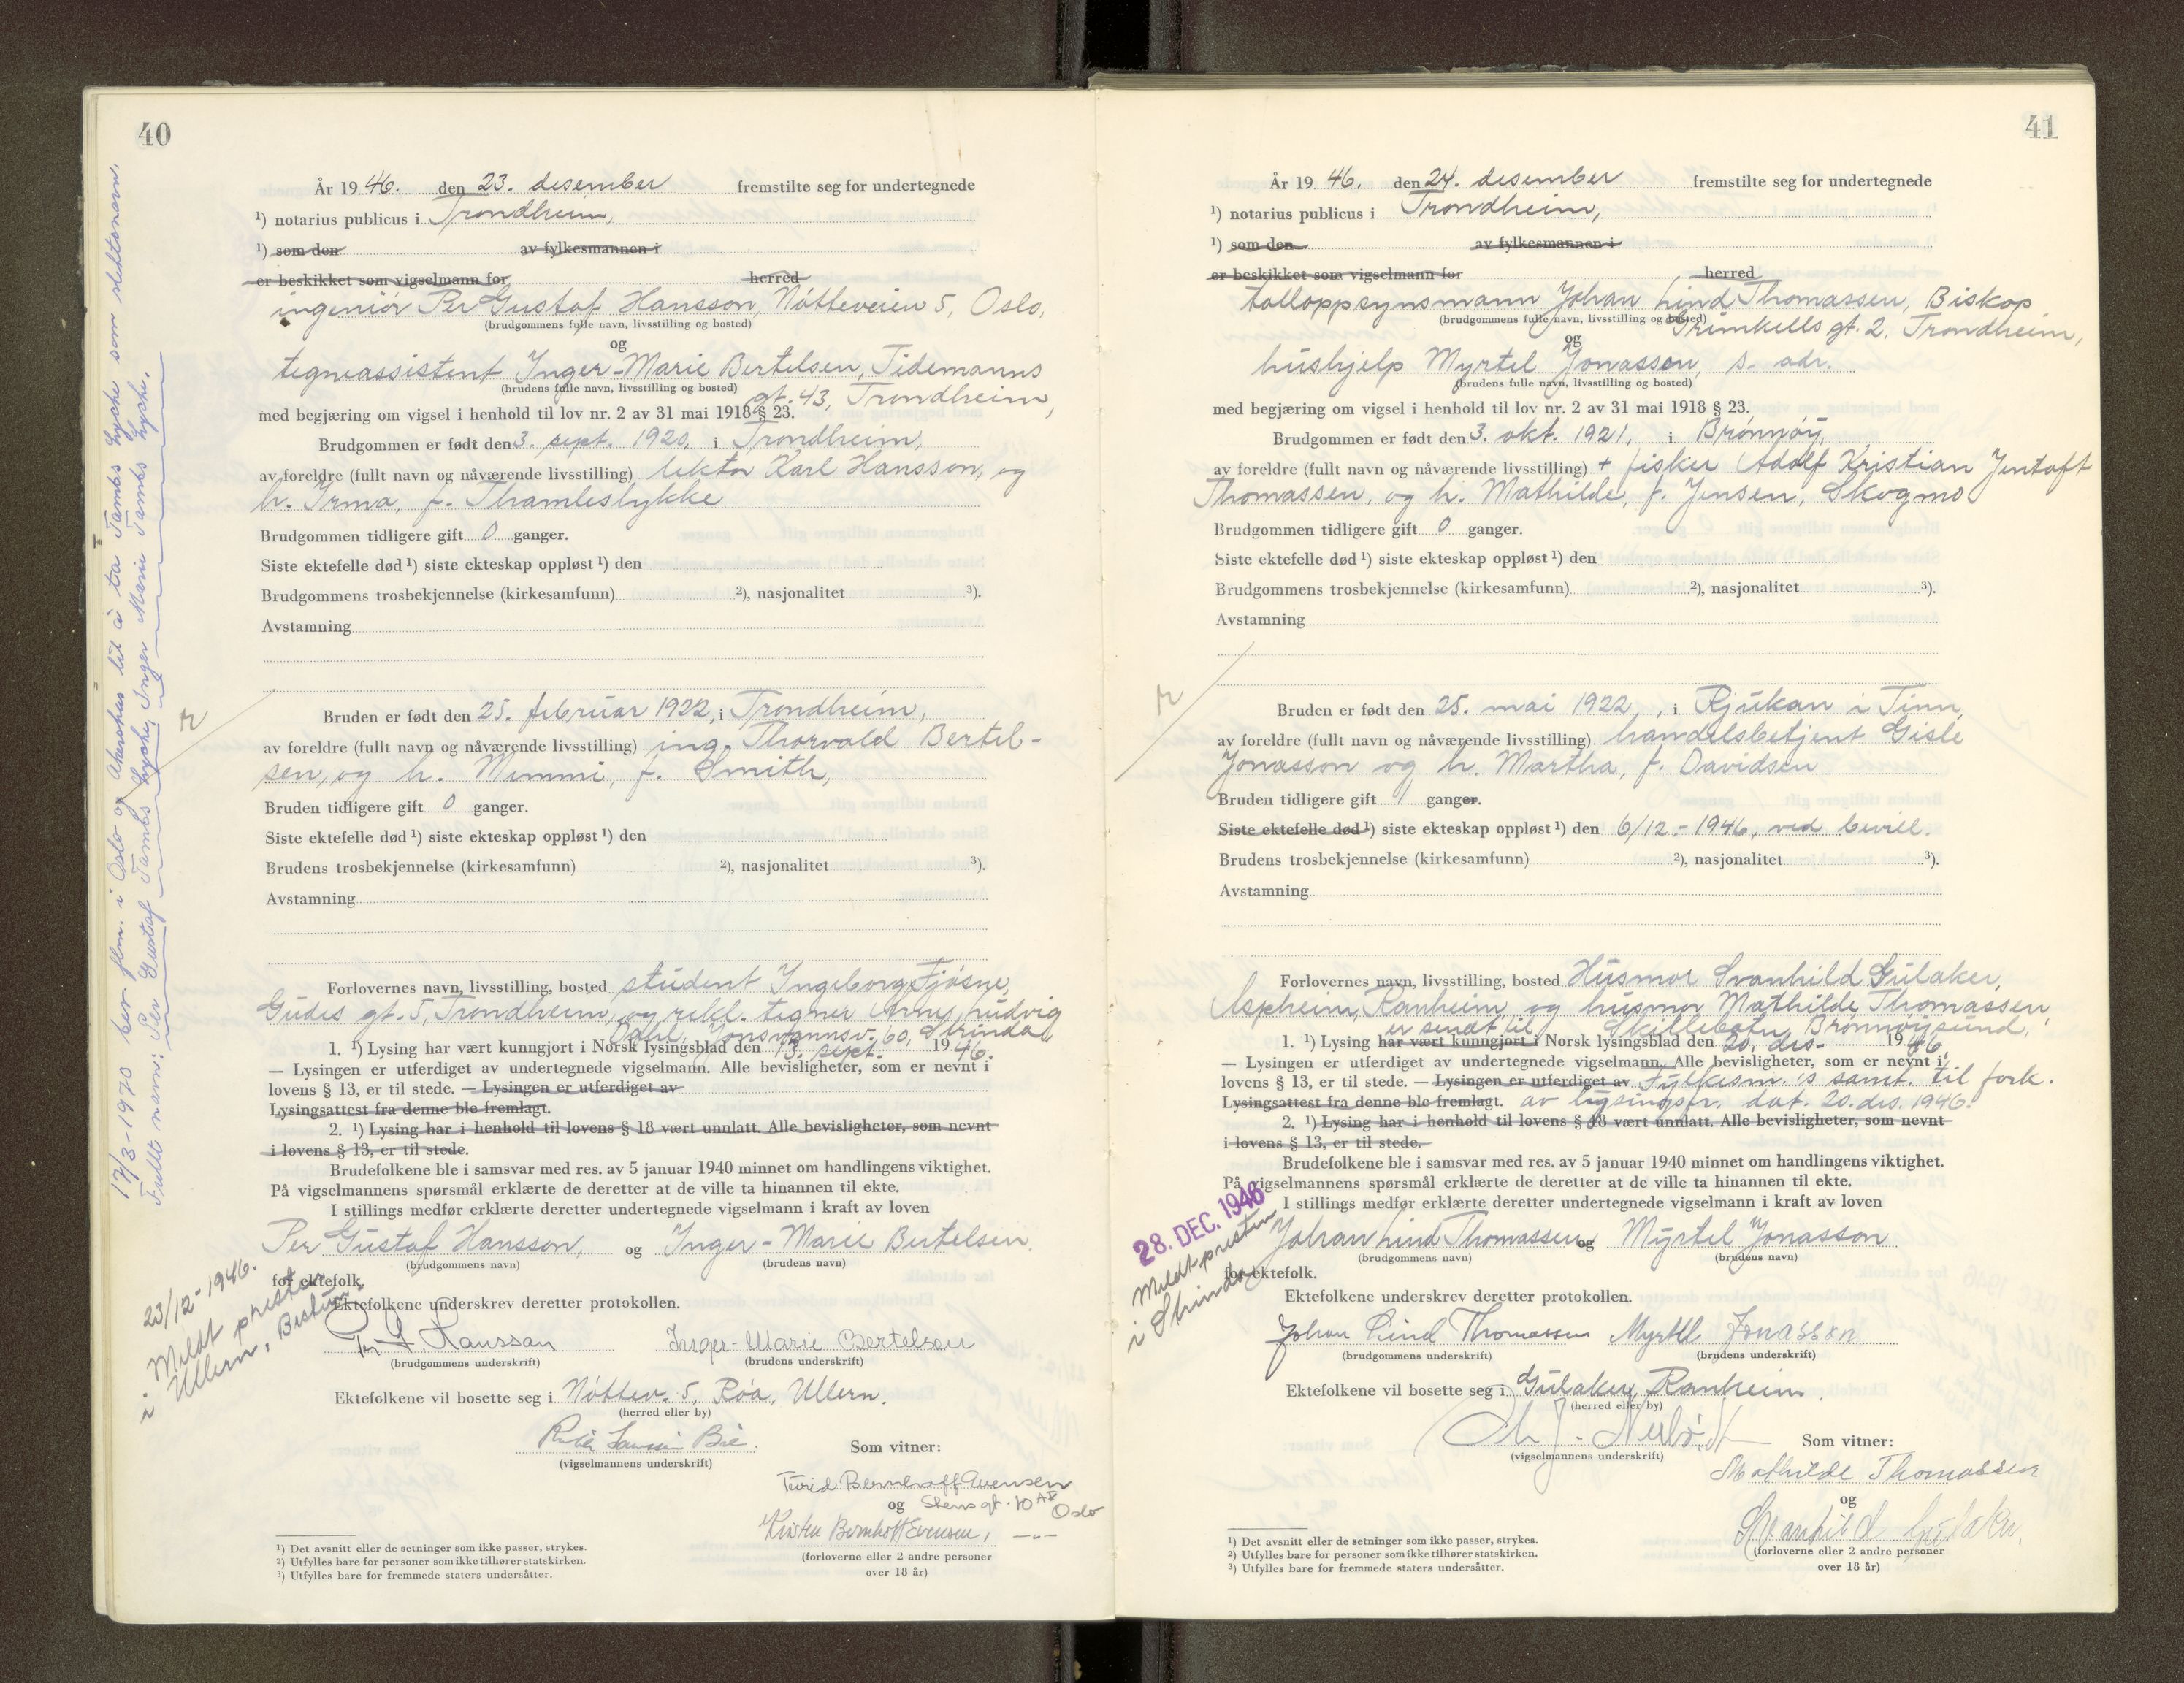 40
År 1946. den 23. desember fremstilte seg for undertegnede
¹) notarius publicus i Trondheim,
¹) som den av fylkesmannen i
er beskikket som vigselmann for herred
ingeniør Per Gustaf Hansson, Nøtteveien 5, Oslo,
(brudgommens fulle navn, livsstilling og bosted)
og
tegneassistent Inger-Marie Bertelsen, Tidemanns
(brudens fulle navn, livsstilling og bosted)
gt. 43, Trondheim,
med begjæring om vigsel i henhold til lov nr. 2 av 31 mai 1918 § 23.
Brudgommen er født den 3. sept. 1920, i Trondheim,
av foreldre (fullt navn og nåværende livsstilling) lektor Karl Hansson, og
h. Irma, f. Thamleslykke
Brudgommen tidligere gift 0 ganger.
Siste ektefelle død ¹) siste ekteskap oppløst ¹) den
Brudgommens trosbekjennelse (kirkesamfunn) ²), nasjonalitet ³).
Avstamning
Bruden er født den 25. februar 1922, i Trondheim,
av foreldre (fullt navn og nåværende livsstilling) ing. Thorvald Bertel-
sen, og h. Mimmi, f. Smith,
Bruden tidligere gift 0 ganger.
Siste ektefelle død ¹) siste ekteskap oppløst ¹) den
Brudens trosbekjennelse (kirkesamfunn) ²), nasjonalitet ³).
Avstamning
Forlovernes navn, livsstilling, bosted student Ingeborg Fjøsne,
Gudes gt. 5, Trondheim, og rekl. tegner Arny Ludvig
Jonsvannsv. 60, Strinda,
1. ¹) Lysing har vært kunngjort i Norsk lysingsblad den 13. sept. 1946.
— Lysingen er utferdiget av undertegnede vigselmann. Alle bevisligheter, som er nevnt i
lovens § 13, er til stede. — Lysingen er utferdiget av
Lysingsattest fra denne ble fremlagt.
2. ¹) Lysing har i henhold til lovens § 18 vært unnlatt. Alle bevisligheter, som nevnt
i lovens § 13, er til stede.
Brudefolkene ble i samsvar med res. av 5 januar 1940 minnet om handlingens viktighet.
På vigselmannens spørsmål erklærte de deretter at de ville ta hinannen til ekte.
I stillings medfør erklærte deretter undertegnede vigselmann i kraft av loven
Per Gustaf Hansson, og Inger-Marie Bertelsen.
(brudgommens navn) (brudens navn)
for ektefolk.
Ektefolkene underskrev deretter protokollen.
Per G. Hansson Inger-Marie Bertelsen
(brudgommens underskrift) (brudens underskrift)
Ektefolkene vil bosette seg i Nøttev. 5, Røa, Ullern.
(herred eller by)
(vigselmannens underskrift) Som vitner:
Turid Bernhoff Evensen
og Stensgt. 10 Oslo
Kirsten Bernhoff Evensen, —"—
(forloverne eller 2 andre personer
over 18 år)
¹) Det avsnitt eller de setninger som ikke passer, strykes.
²) Utfylles bare for personer som ikke tilhører statskirken.
³) Utfylles bare for fremmede staters undersåtter.
17/3-1970 ber flm. i Oslo og Akershus lit å ta Tambs Lyche som slektsnavn.
Fulle navn: Per Gustaf Tambs Lyche, Inger Marie Tambs Lyche.
23/12-1946.
Meldt presten
i Ullern, Bestun.
41
År 1946. den 24. desember fremstilte seg for undertegnede
¹) notarius publicus i Trondheim,
¹) som den av fylkesmannen i
er beskikket som vigselmann for herred
tolloppsynsmann Johan Lind Thomassen, Biskop
(brudgommens fulle navn, livsstilling og bosted)
Grimkells gt. 2, Trondheim,
og
hushjelp Myrtel Jonasson, s. adr.
(brudens fulle navn, livsstilling og bosted)
med begjæring om vigsel i henhold til lov nr. 2 av 31 mai 1918 § 23.
Brudgommen er født den 3. okt. 1921, i Brønnøy,
av foreldre (fullt navn og nåværende livsstilling) + fisker Adolf Kristian Jentoft
Thomassen, og h. Mathilde, f. Jensen, Skogmo
Brudgommen tidligere gift 0 ganger.
Siste ektefelle død ¹) siste ekteskap oppløst ¹) den
Brudgommens trosbekjennelse (kirkesamfunn) ²), nasjonalitet ³).
Avstamning
Bruden er født den 25. mai 1922, i Rjukan i Tinn,
av foreldre (fullt navn og nåværende livsstilling) handelsbetjent Gisle
Jonasson og h. Martha, f. Davidsen
Bruden tidligere gift 1 ganger.
Siste ektefelle død ¹) siste ekteskap oppløst ¹) den 6/12.-1946, ved bevill.
Brudens trosbekjennelse (kirkesamfunn) ²), nasjonalitet ³).
Avstamning
Forlovernes navn, livsstilling, bosted Husmor Svanhild Gulaker,
Aspheim, Ranheim, og husmor Mathilde Thomassen,
er sendt til Skillebotn, Brønnøysund,
1. ¹) Lysing har vært kunngjort i Norsk lysingsblad den 20. des. 1946
— Lysingen er utferdiget av undertegnede vigselmann. Alle bevisligheter, som er nevnt i
lovens § 13, er til stede. — Lysingen er utferdiget av Fylkesm.'s samt. til fork.
Lysingsattest fra denne ble fremlagt. av lysingsfr. dat. 20. des. 1946.
2. ¹) Lysing har i henhold til lovens § 18 vært unnlatt. Alle bevisligheter, som nevnt
i lovens § 13, er til stede.
Brudefolkene ble i samsvar med res. av 5 januar 1940 minnet om handlingens viktighet.
På vigselmannens spørsmål erklærte de deretter at de ville ta hinannen til ekte.
I stillings medfør erklærte deretter undertegnede vigselmann i kraft av loven
Johan Lind Thomassen og Myrtel Jonasson
(brudgommens navn) (brudens navn)
for ektefolk.
Ektefolkene underskrev deretter protokollen.
Johan Lind Thomassen Myrtel Jonasson
(brudgommens underskrift) (brudens underskrift)
Ektefolkene vil bosette seg i Gulaker, Ranheim.
(herred eller by)
(vigselmannens underskrift) Som vitner:
Mathilde Thomassen
og
Svanhild Gulaker.
(forloverne eller 2 andre personer
over 18 år)
¹) Det avsnitt eller de setninger som ikke passer, strykes.
²) Utfylles bare for personer som ikke tilhører statskirken.
³) Utfylles bare for fremmede staters undersåtter.
28. DEC. 1946
Meldt presten
i Strinda